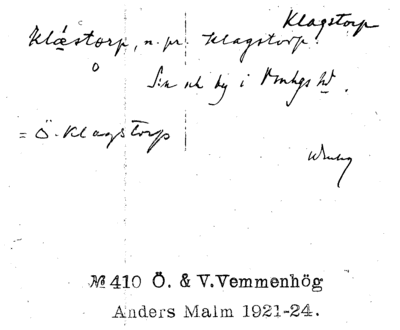 Klagstorp
Klǽstorp, n. pr. Klagstorp.
Sn och by i Vmhgs hd.
= Ö. Klagstorp
№ 410 Ö. & V. Vemmenhög
Anders Malm 1921-24.